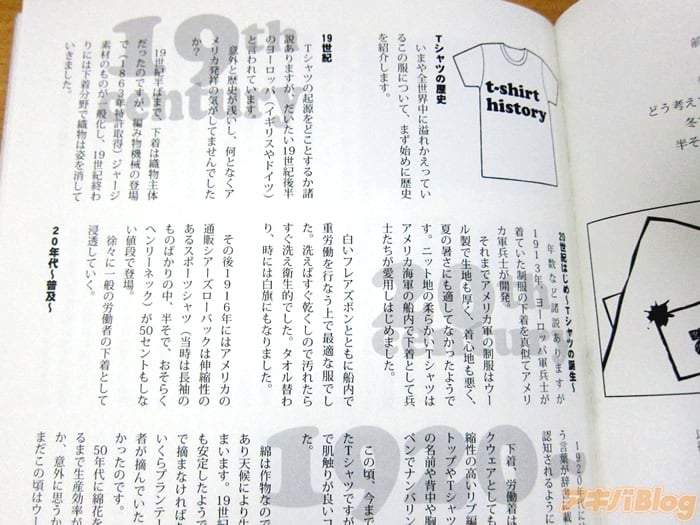 t-shirt
history
Tシャツの歴史
いまや全世界中に溢れかえってい
るこの服について、まず始めに歴史
を紹介します。
19th
century
19世紀
Tシャツの起源をどことするか諸
説ありますが、だいたい19世紀後半
のヨーロッパ（イギリスやドイツ）
と言われています。
意外と歴史が浅いし、何となくア
メリカ発祥の気がしてませんでした
か？
19世紀半ばまで、下着は織物主体
だったのですが、編み物機械の登場
で（1863年特許取得）ジャージ
素材のものが一般化し、19世紀終わ
りには下着分野で織物は姿を消して
いきました。
20世紀はじめ〜Tシャツの誕生〜
年数など諸説ありますが
1913年、ヨーロッパ軍兵士が
着ていた制服の下着を真似てアメリ
カ軍兵士が開発。
それまでアメリカ軍の制服はウー
ル製で生地も厚く、着心地も悪く、
夏の暑さにも適してなかったようで
す。ニット地の柔らかいTシャツは
アメリカ海軍の船内で下着として兵
士たちが愛用しはじめました。
白いフレアズボンとともに船内で
重労働を行なう上で最適な服でし
た。洗えばすぐ乾くしので汚れたら
すぐ洗え衛生的でした。タオル替わ
り、時には白旗にもなりました。
その後1916年にはアメリカの
通販シアーズローバックは伸縮性の
あるスポーツシャツ（当時は長袖の
ものばかりの中、半そで、おそらく
ヘンリーネック）が50セントもしな
い値段で登場。
徐々に一般の労働者の下着として
浸透していく。
20年代〜普及〜
1920
1920年代に
う言葉が辞
認知されるように
下着、労働着
クウェアとしても
縮性の高いリブ編
トップやTシャツ
の名前や背中や胸
ペンでナンバリン
この頃、今まで
たTシャツですが
で肌触りが良いコ
た。
綿は作物なので
あり天候により生
まいます。19世紀
も安定したようで
で摘まなければな
いくらプランテー
者が摘んでいたと
かったのです。
50年代に綿花を
るまで生産効率が
か、意外に思うか
まだこの頃はウー
どう考え
冬で
半そ
アキバBlog